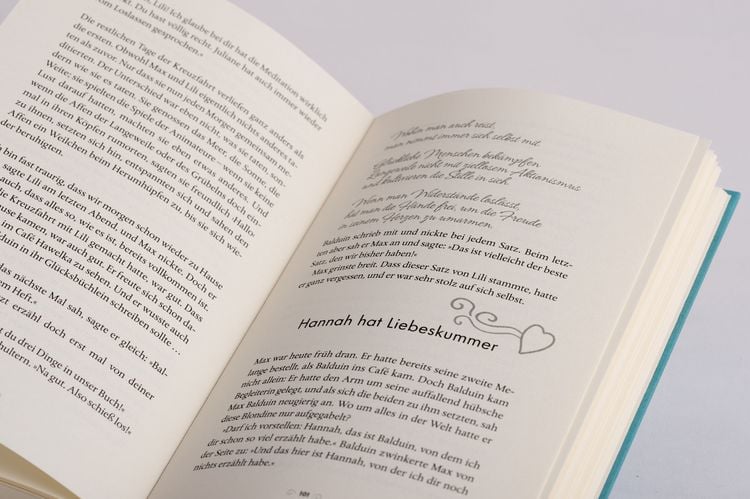 Lili! Ich glaube bei dir hat die Meditation wirklich
Du hast völlig recht. Juliane hat auch immer wieder
vom Loslassen gesprochen.«
Die restlichen Tage der Kreuzfahrt verliefen ganz anders als
die ersten. Obwohl Max und Lili eigentlich nichts anderes ta-
ten als zuvor. Nur dass sie nun jeden Morgen gemeinsam me-
ditierten. Der Unterschied war eben nicht, was sie taten, son-
dern wie sie es taten. Sie genossen das Meer, die Sonne, die
Weite; sie spielten die Spiele der Animateure – wenn sie keine
Lust darauf hatten, machten sie eben etwas anderes. Und
wenn die Affen der Langeweile oder des Grübelns doch ein-
mal in ihren Köpfen rumorten, sagten sie freundlich Hallo
zu ihnen, setzten sich hin, entspannten sich und sahen den
Affen ein Weilchen beim Herumhüpfen zu, bis sie sich wie-
der beruhigten.
bin fast traurig, dass wir morgen schon wieder zu Hause
sagte Lili am letzten Abend, und Max nickte. Doch er
auch, dass alles so, wie es ist, bereits vollkommen ist.
Kreuzfahrt mit Lili gemacht hatte, war gut. Dass
Hause kamen, war auch gut. Er freute sich schon da-
im Café Hawelka zu sehen. Und er wusste auch
duin in ihr Glücksbüchlein schreiben sollte ...
das nächste Mal sah, sagte er gleich: »Bal-
em Heft.«
erzähl doch erst mal von deiner
du drei Dinge in unser Buch!«
»Na gut. Also schieß los!«
Wohin man auch reist,
man nimmt immer sich selbst mit.
Glückliche Menschen bekämpfen
Langeweile nicht mit ziellosem Aktionismus
und kultivieren die Stille in sich.
Wenn man Widerstände loslässt,
hat man die Hände frei, um die Freude
in seinem Herzen zu umarmen.
Balduin schrieb mit und nickte bei jedem Satz. Beim letz-
ten aber sah er Max an und sagte: »Das ist vielleicht der beste
Satz, den wir bisher haben!«
Max grinste breit. Dass dieser Satz von Lili stammte, hatte
er ganz vergessen, und er war sehr stolz auf sich selbst.
Hannah hat Liebeskummer
Max war heute früh dran. Er hatte bereits seine zweite Me-
lange bestellt, als Balduin ins Café kam. Doch Balduin kam
nicht allein: Er hatte den Arm um seine auffallend hübsche
Begleiterin gelegt, und als sich die beiden zu ihm setzten, sah
Max Balduin neugierig an. Wo um alles in der Welt hatte er
diese Blondine nur aufgegabelt?
»Darf ich vorstellen: Hannah, das ist Balduin, von dem ich
dir schon so viel erzählt habe.« Balduin zwinkerte Max von
der Seite zu: »Und das hier ist Hannah, von der ich dir noch
nichts erzählt habe.«
101